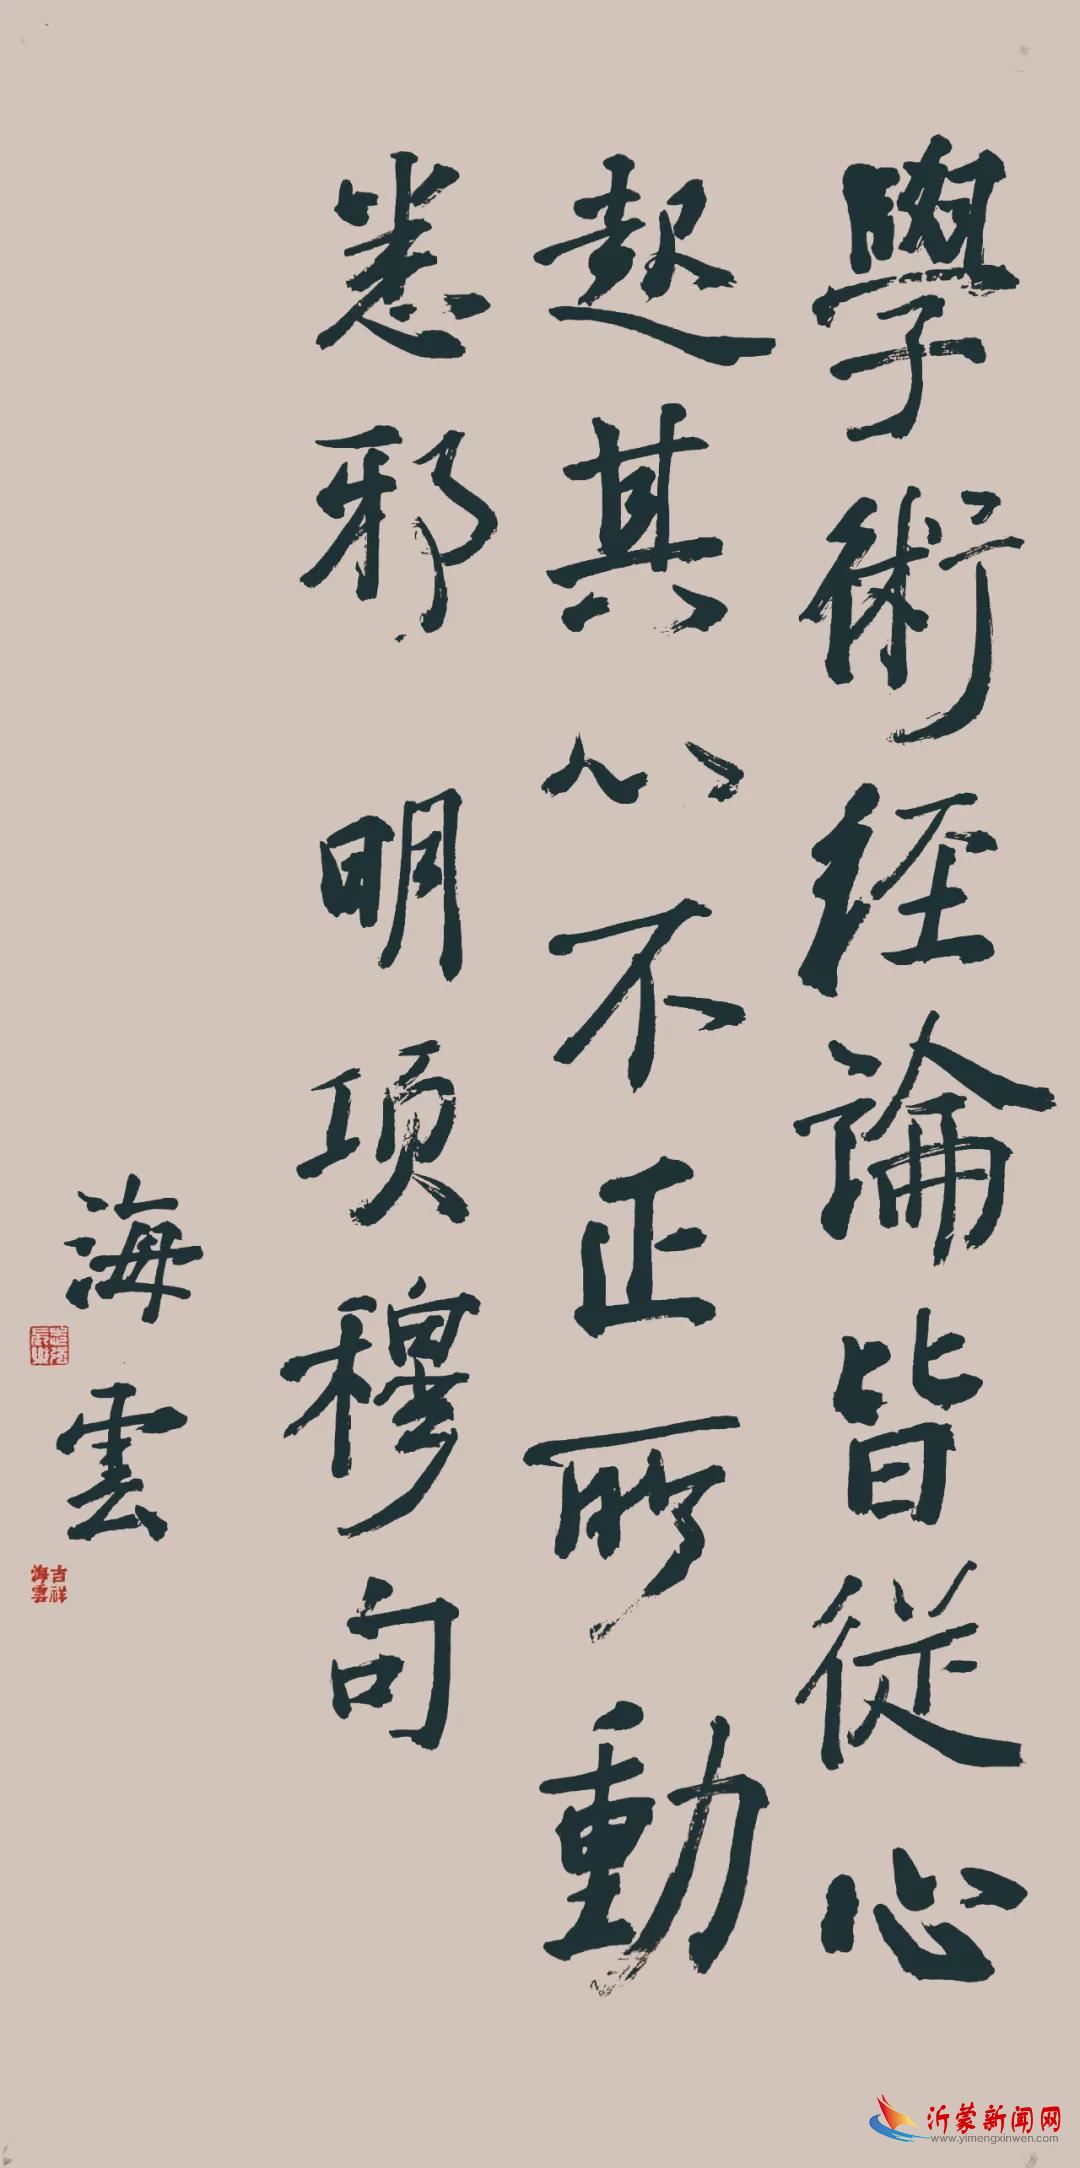 學術經論皆從心
起其心不正所動
悉邪 明項穆句
海雲
吉祥
海雲
沂蒙新闻网
www.yimengxinwen.com